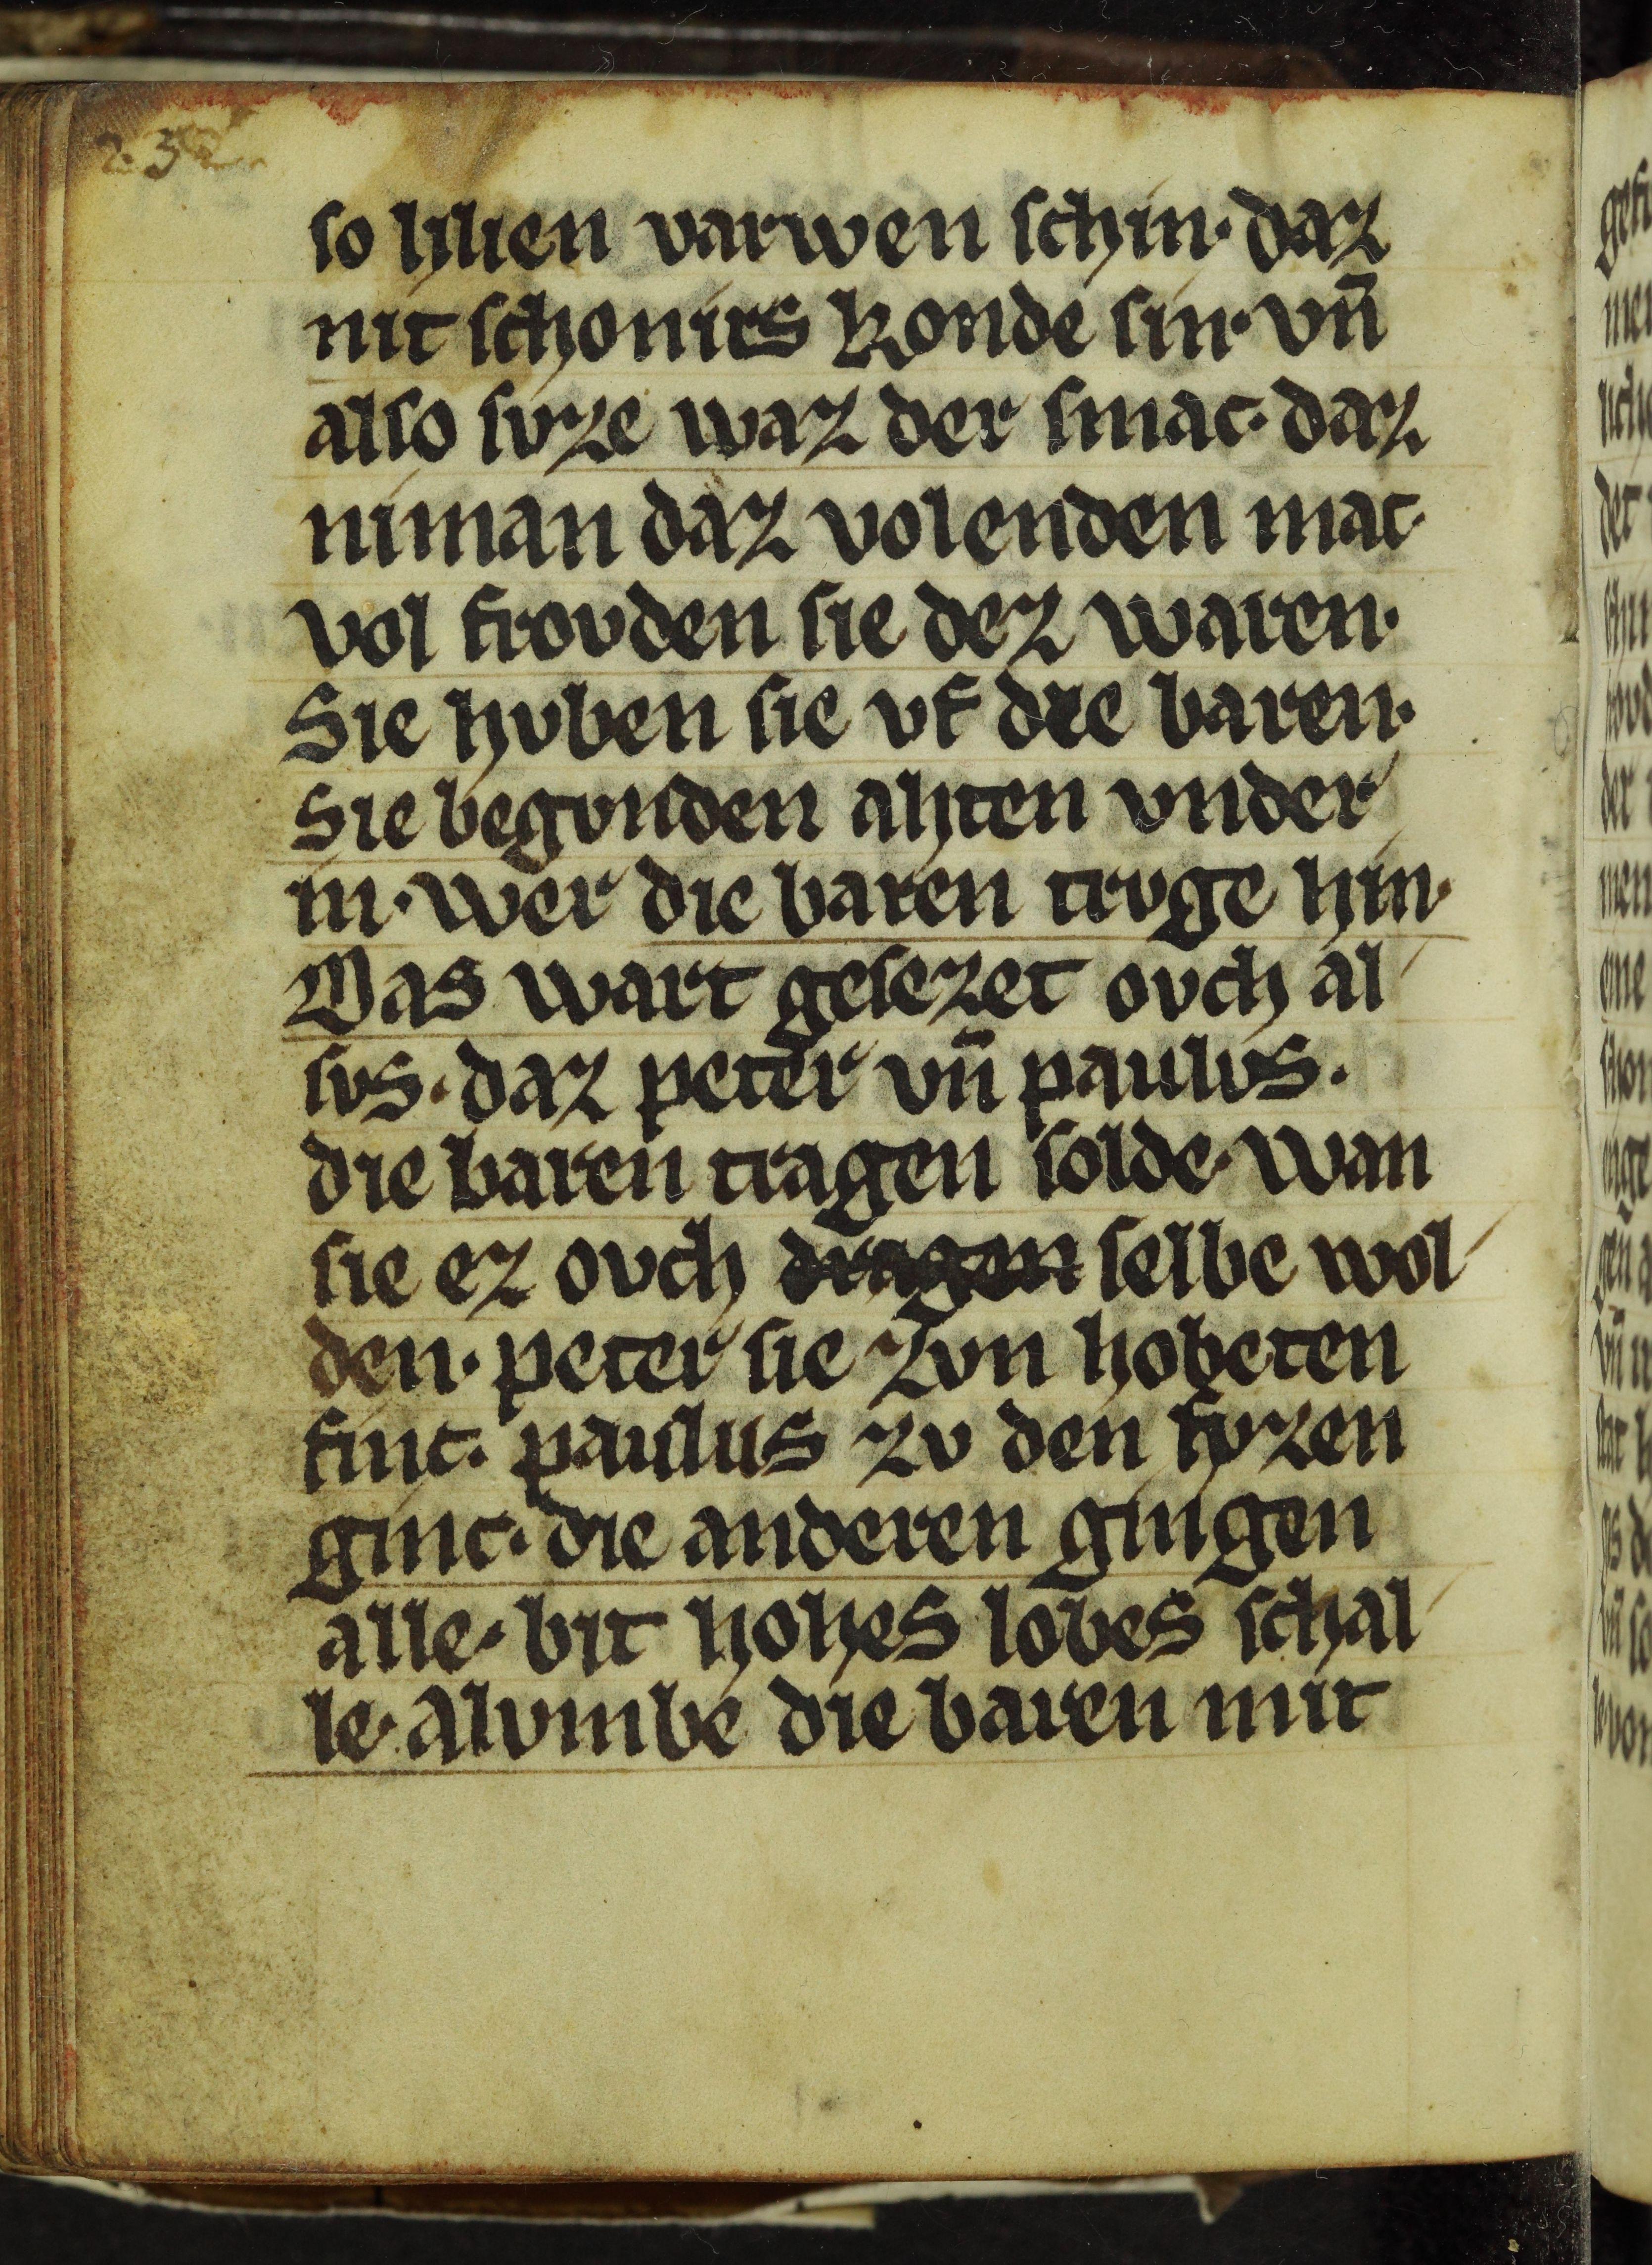 so lilien varwen schin· daz
nit schonirs konde sin· vn̄
also svze waz der smac· daz
niman daz volenden mac·
vol frovden sie dez waren·
Sie hvben sie vf die baren·
Sie begvnden ahten vnder
in· wer die baren trvge hin·
Das wart gesezet ovch al
svs· daz peter vn̄ paulvs·
die baren tragen solde· wan
sie ez ovch dragen selbe wol
den· peter sie zvn hobeten
finc· paulus zv den fvzen
ginc· die anderen gingen
alle· bit hohes lobes schal
le· Alvmbe die baren mit